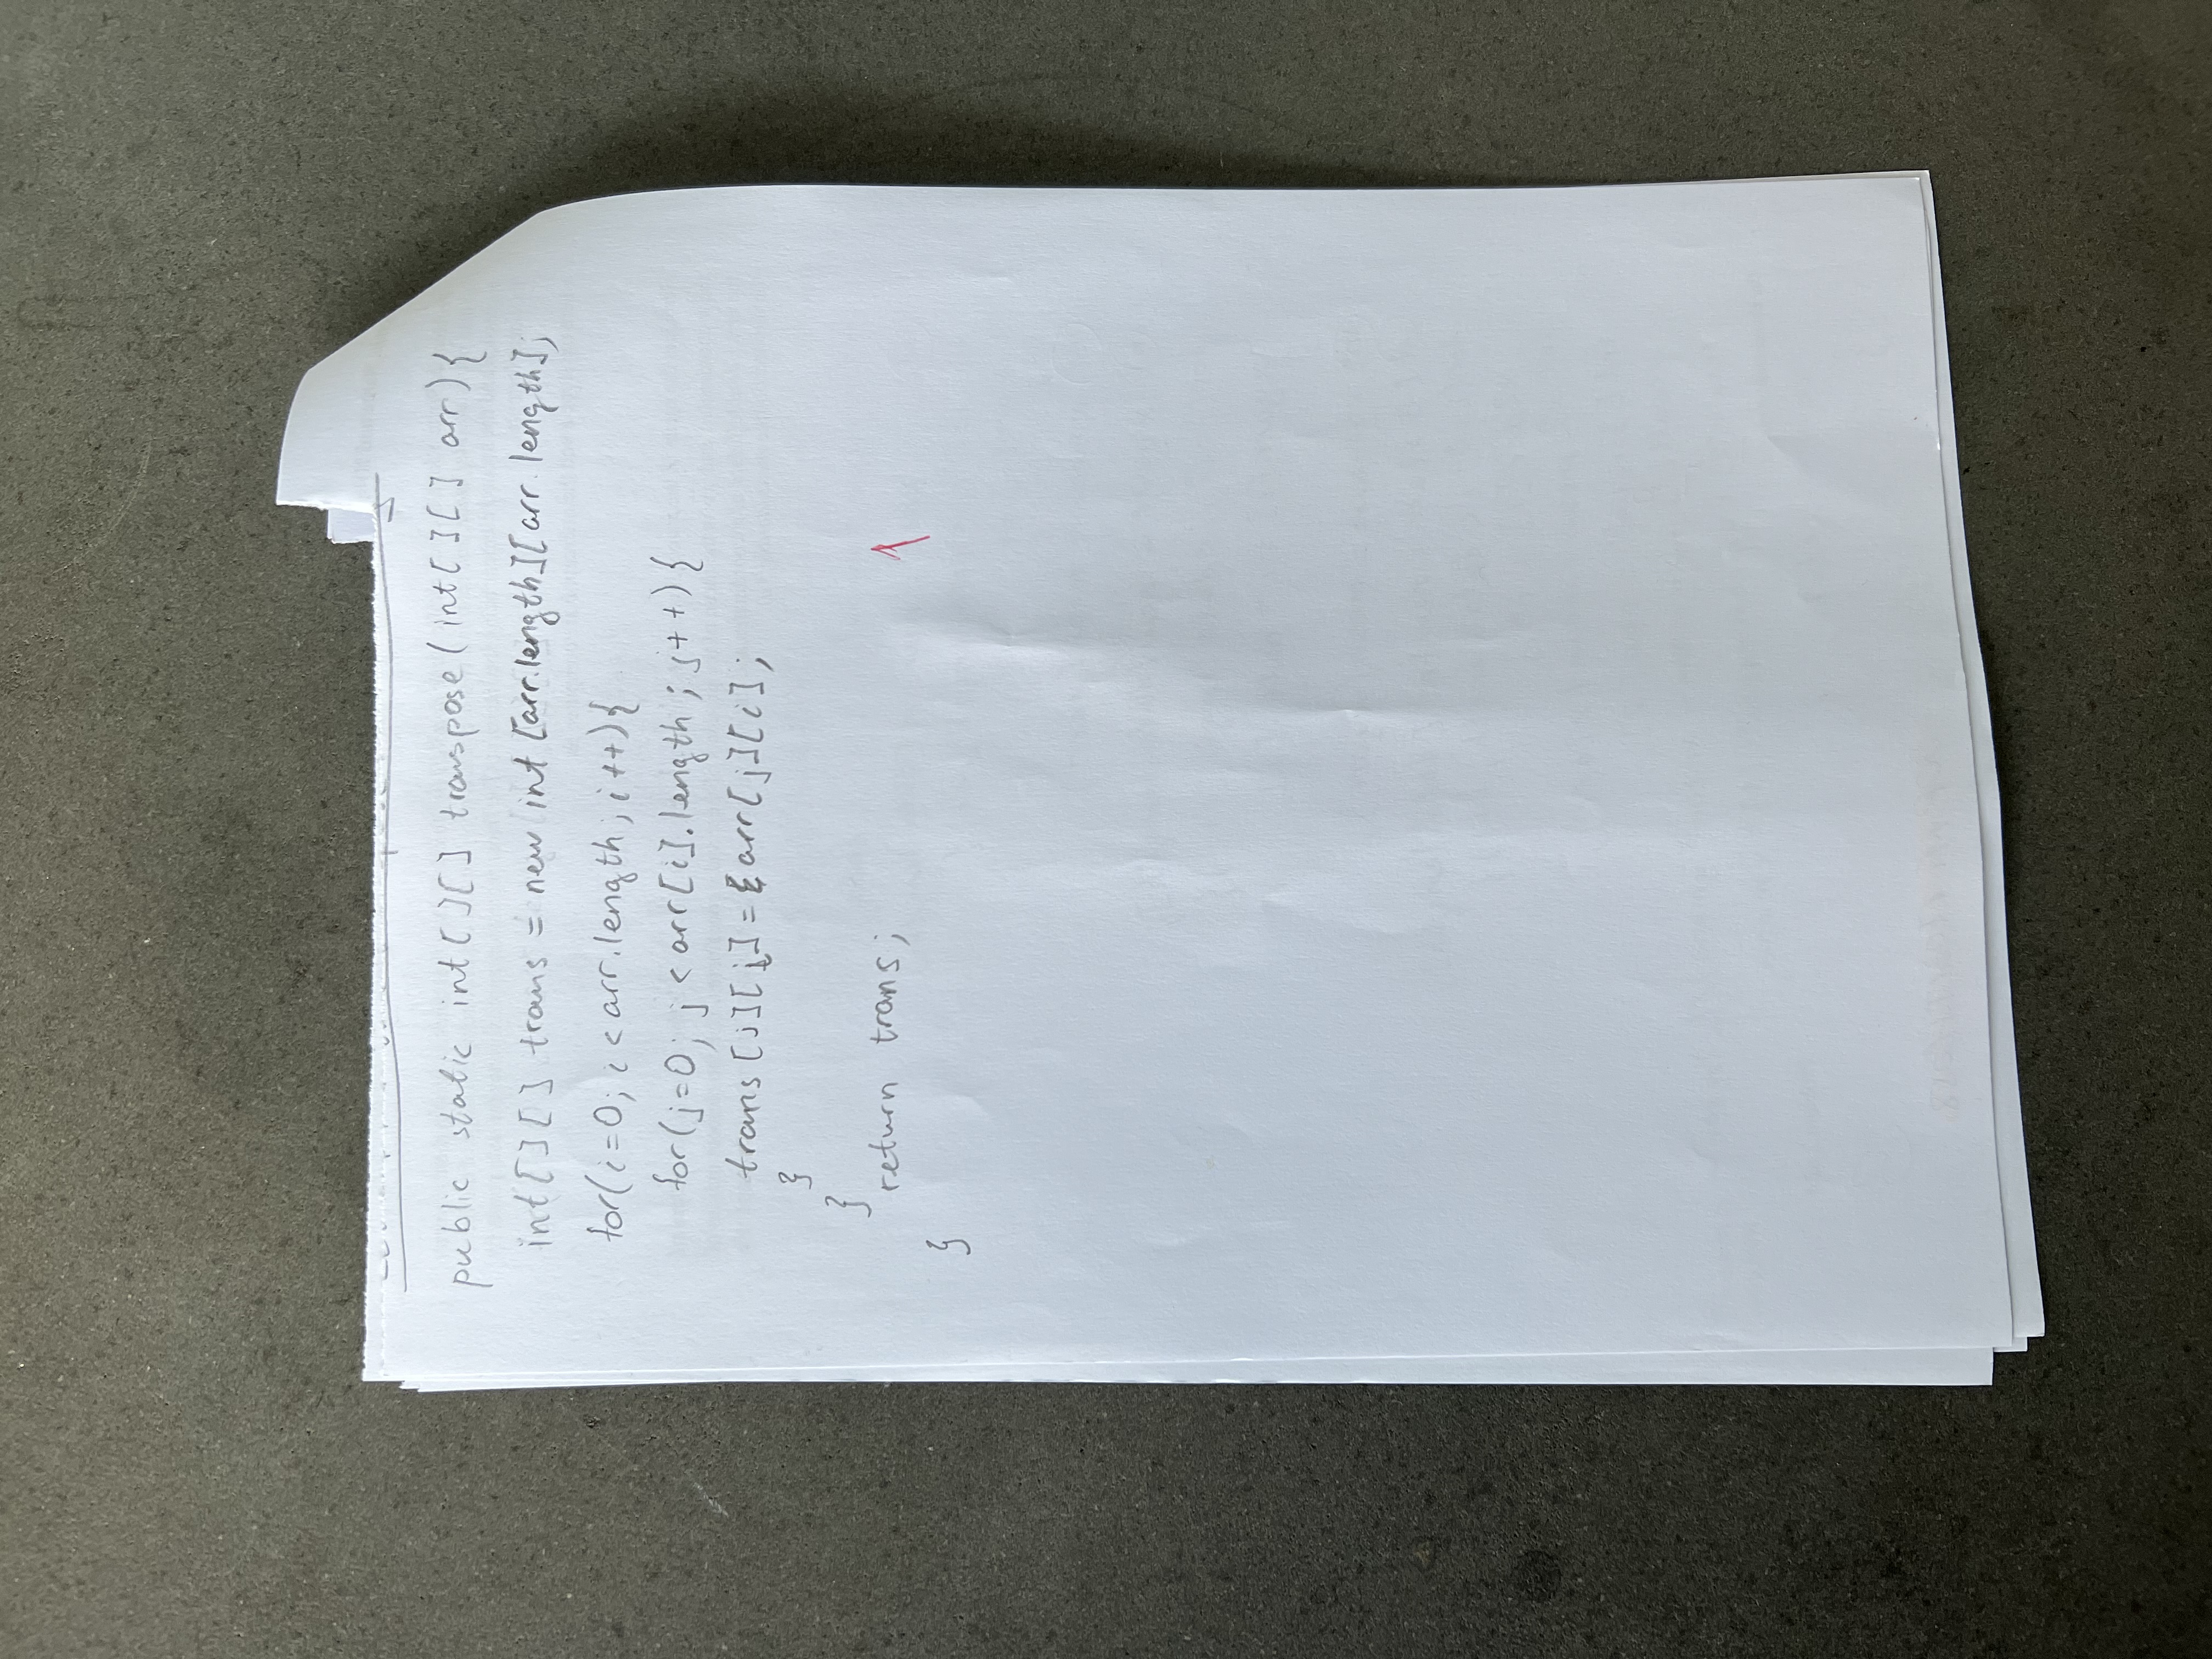 public static int[][] transpose(int[][] arr){
int[][] trans = new int [arr.length][arr.length];
for(i=0; i<arr.length; i++){
for(j=0; j<arr[i].length; j++){
trans [j][i] = arr[j][i];
}
}
return trans;
}
1